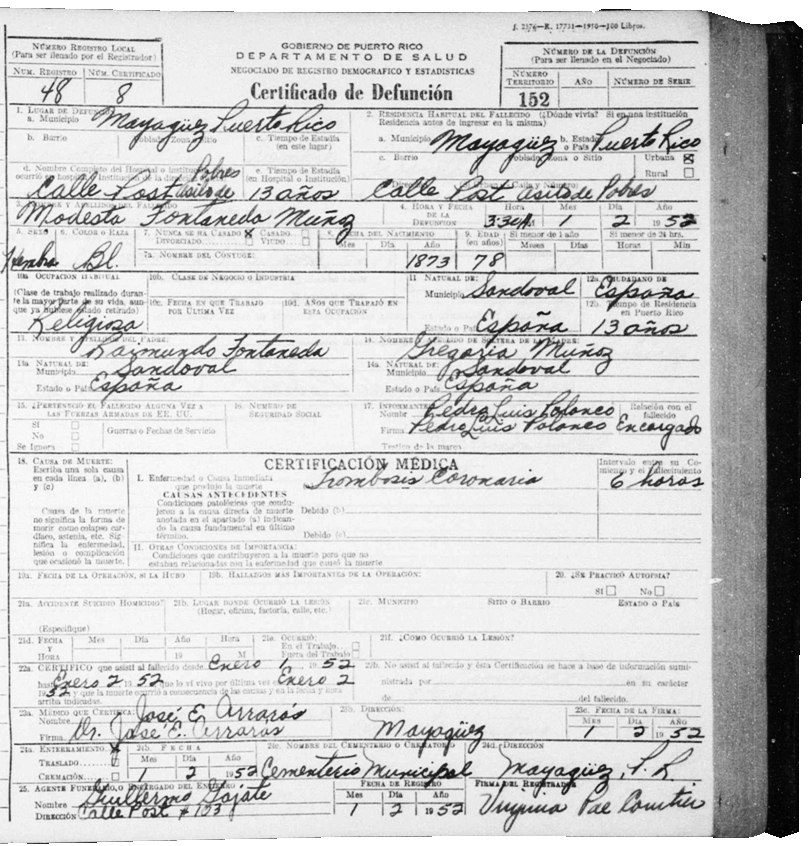 J. 2376—R. 17731—1950—300 Libros.
NÚMERO REGISTRO LOCAL
(Para ser llenado por el Registrador)
NUM. REGISTRO NÚM. CERTIFICADO
48 8
GOBIERNO DE PUERTO RICO
DEPARTAMENTO DE SALUD
NEGOCIADO DE REGISTRO DEMOGRAFICO Y ESTADISTICAS
Certificado de Defunción
NÚMERO DE LA DEFUNCIÓN
(Para ser llenado en el Negociado)
NÚMERO TERRITORIO AÑO NÚMERO DE SERIE
152
1. LUGAR DE DEFUNCIÓN
a. Municipio Mayagüez Puerto Rico
b. Barrio Poblado Zona o Sitio c. Tiempo de Estadía (en este lugar)
d. Nombre Completo del Hospital o institución e. Tiempo de Estadía (en Hospital o Institución)
Calle Post Asilo de Pobres 13 años
2. RESIDENCIA HABITUAL DEL FALLECIDO (¿Dónde vivía? Si en una institución
Residencia antes de ingresar en la misma)
a. Municipio Mayagüez b. Estado o País Puerto Rico
c. Barrio Poblado Zona o Sitio Urbana Rural
Calle Post Asilo de Pobres
3. NOMBRE Y APELLIDOS DEL FALLECIDO
Modesta Fontaneda Muñoz
4. HORA Y FECHA DE LA DEFUNCION Hora Mes Día Año
3:30 A. M. 1 2 1952
5. SEXO 6. COLOR o RAZA 7. NUNCA SE HA CASADO CASADO
DIVORCIADO VIUDO
Hembra Bl.
7a. NOMBRE DEL CONYUGE:
8. FECHA DEL NACIMIENTO Mes Día Año
1873
9. EDAD (en años) Si menor de 1 año Meses Días Si menor de 24 hrs. Horas Min
78
10a. OCUPACION HABITUAL
(Clase de trabajo realizado durante la mayor parte de su vida, aunque ya hubiese estado retirado)
Religiosa
10b. CLASE DE NEGOCIO O INDUSTRIA
10c. FECHA EN QUE TRABAJO POR ULTIMA VEZ
10d. AÑOS QUE TRABAJÓ EN ESTA OCUPACIÓN
11 NATURAL DE:
Municipio Sandoval
Estado o País España
12a. CIUDADANO DE
España
12b. Tiempo de Residencia en Puerto Rico
13 años
13. NOMBRE Y APELLIDO DEL PADRE:
Raimundo Fontaneda
13a NATURAL DE:
Municipio Sandoval
Estado o País España
14. NOMBRE Y APELLIDO DE SOLTERA DE LA MADRE:
Gregoria Muñoz
14a NATURAL DE:
Municipio Sandoval
Estado o País España
15. ¿PERTENECIÓ EL FALLECIDO ALGUNA VEZ A
LAS FUERZAS ARMADAS DE EE. UU.
SI
No
Se Ignora
Guerras o Fechas de Servicio
16. NÚMERO DE SEGURIDAD SOCIAL
17. INFORMANTE
Nombre Pedro Luis Polanco
Firma Pedro Luis Polanco
Relación con el fallecido
Encargado
Testigo de la marca
18. CAUSA DE MUERTE:
Escriba una sola causa en cada línea (a), (b) y (c)
Causa de la muerte no significa la forma de morir como colapso cardíaco, astenia, etc. Significa la enfermedad, lesión o complicación que ocasionó la muerte.
CERTIFICACIÓN MÉDICA
I. Enfermedad o Causa Inmediata que produjo la muerte
Trombosis Coronaria
Intervalo entre su Comienzo y el Fallecimiento
6 horas
CAUSAS ANTECEDENTES
Condiciones patológicas que condujeron a la causa directa de muerte anotada en el apartado (a) indicando la causa fundamental en último término.
Debido (b)
Debido (c)
II. OTRAS CONDICIONES DE IMPORTANCIA:
Condiciones que contribuyeron a la muerte pero que no estaban relacionadas con la enfermedad que causó la muerte
19a. FECHA DE LA OPERACIÓN, SI LA HUBO 19b. HALLAZGOS MÁS IMPORTANTES DE LA OPERACIÓN: 20. ¿SE PRACTICÓ AUTOPSIA?
SI No
21a. ACCIDENTE SUICIDIO HOMICIDIO? 21b. LUGAR DONDE OCURRIÓ LA LESIÓN 21c. MUNICIPIO SITIO O BARRIO ESTADO O PAÍS
(Hogar, oficina, factoría, calle, etc.)
(Especifique)
21d. FECHA Y HORA Mes Día Año Hora 21e. OCURRIÓ: En el Trabajo Fuera del Trabajo 21f. ¿COMO OCURRIÓ LA LESIÓN?
19 M
22a. CERTIFICO que asistí al fallecido desde Enero 1 1952
hasta Enero 2 1952 que lo ví vivo por última vez Enero 2
1952 y que la muerte ocurrió a consecuencia de las causas y en la fecha y hora arriba indicadas.
22b. No asistí al fallecido y ésta Certificación se hace a base de información suministrada por en su carácter
de del fallecido.
23a. MÉDICO QUE CERTIFICA:
Nombre José E. Arrarás
Firma Dr. José E. Arrarás
23b. DIRECCIÓN:
Mayagüez
23c. FECHA DE LA FIRMA:
Mes Día Año
1 2 1952
24a. ENTERRAMIENTO
TRASLADO
CREMACIÓN
24b. FECHA
Mes Día Año
1 2 1952
24c. NOMBRE DEL CEMENTERIO O CREMATORIO
Cementerio Municipal
24d. DIRECCIÓN
Mayagüez, P. R.
25. AGENTE FUNERARIO O ENCARGADO DEL ENTIERRO
Nombre Guillermo
DIRECCIÓN Calle Post #123
FECHA DE REGISTRO
Mes Día Año
1 2 1952
FIRMA DEL REGISTRADOR
Virginia